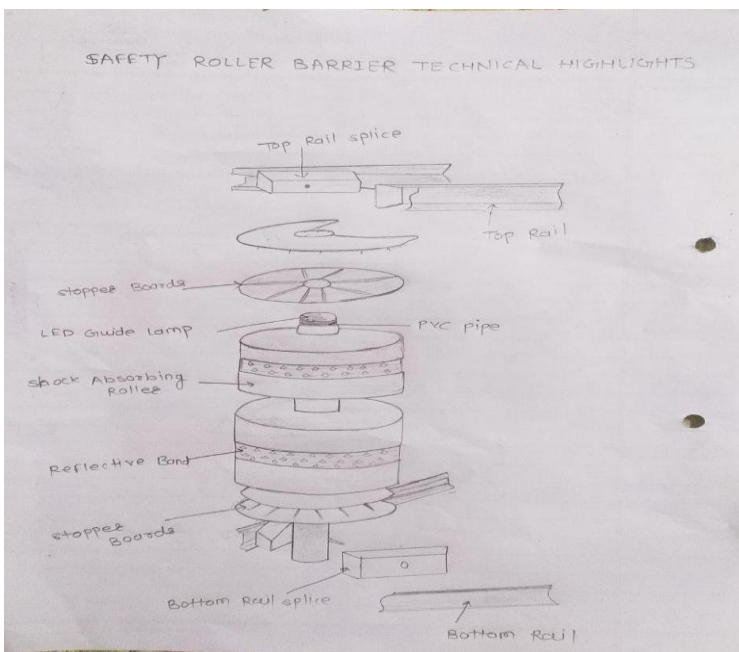 SAFETY ROLLER BARRIER TECHNICAL HIGHLIGHTS
Top Rail splice
Top Rail
Stopper Boards
LED Guide lamp
PVC pipe
Shock Absorbing
Roller
Reflective Band
Stopper
Boards
Bottom Rail splice
Bottom Rail